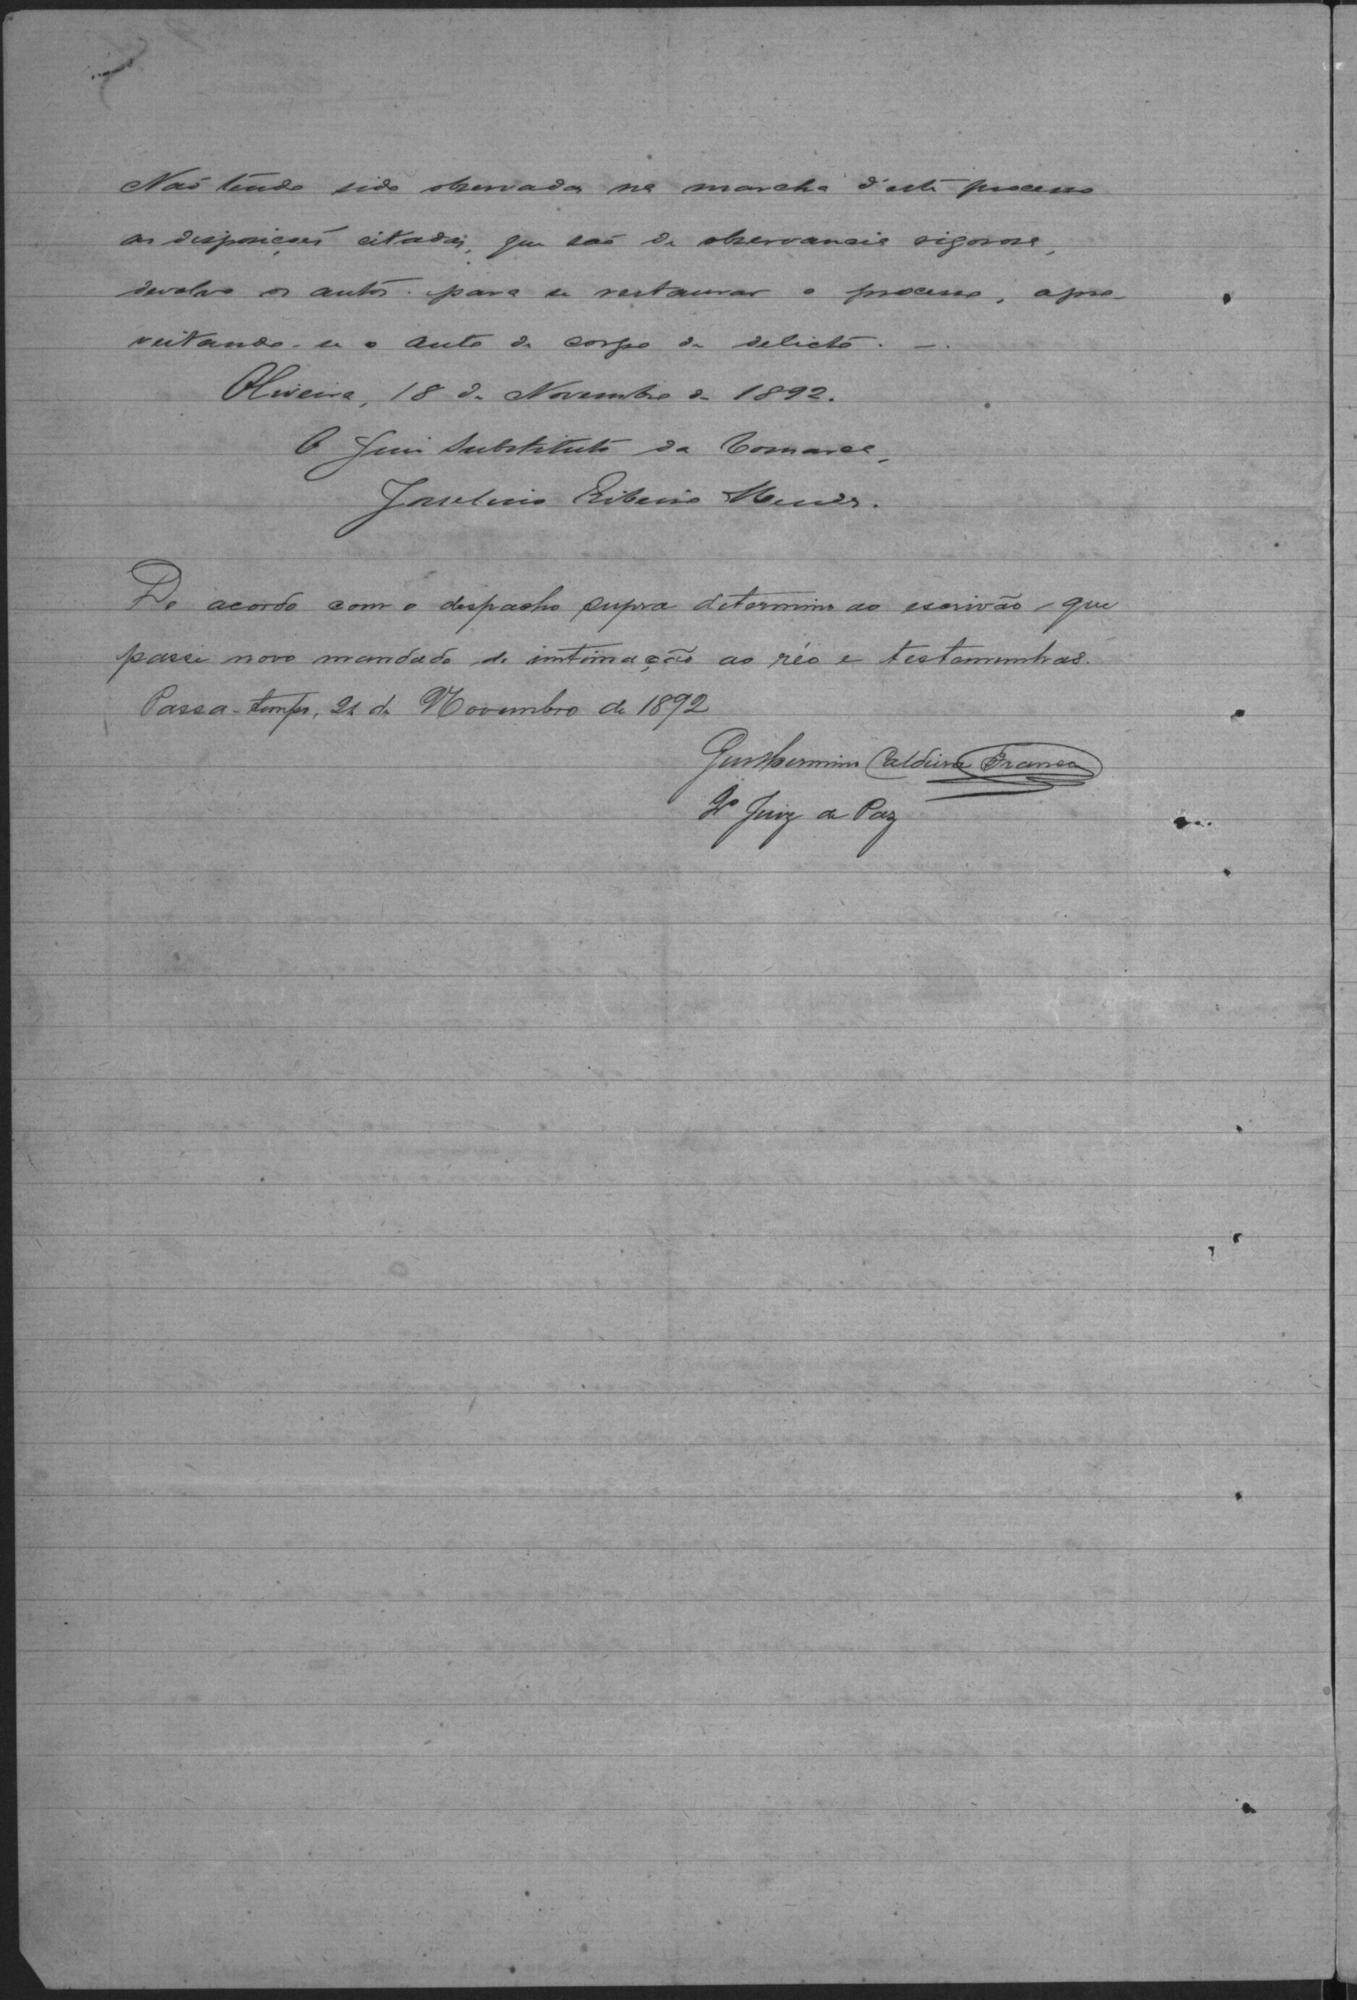 Não tendo sido observadas na marcha d'este processo
as disposições citadas, que são de observancia rigorosa,
devolvo os autos para se restaurar o processo, apro-
veitando-se o auto de corpo de delicto. —.
Oliveira, 18 de Novembro de 1892.
O Juiz Substituto da Comarca,
Joselino Ribeiro Mendes.
De acordo com o despacho supra determino ao escrivão que
passe novo mandado de intimação ao réo e testemunhas.
Passa-tempo, 21 de Novembro de 1892
Guilhermino Caldeira Franco
Juiz de Paz